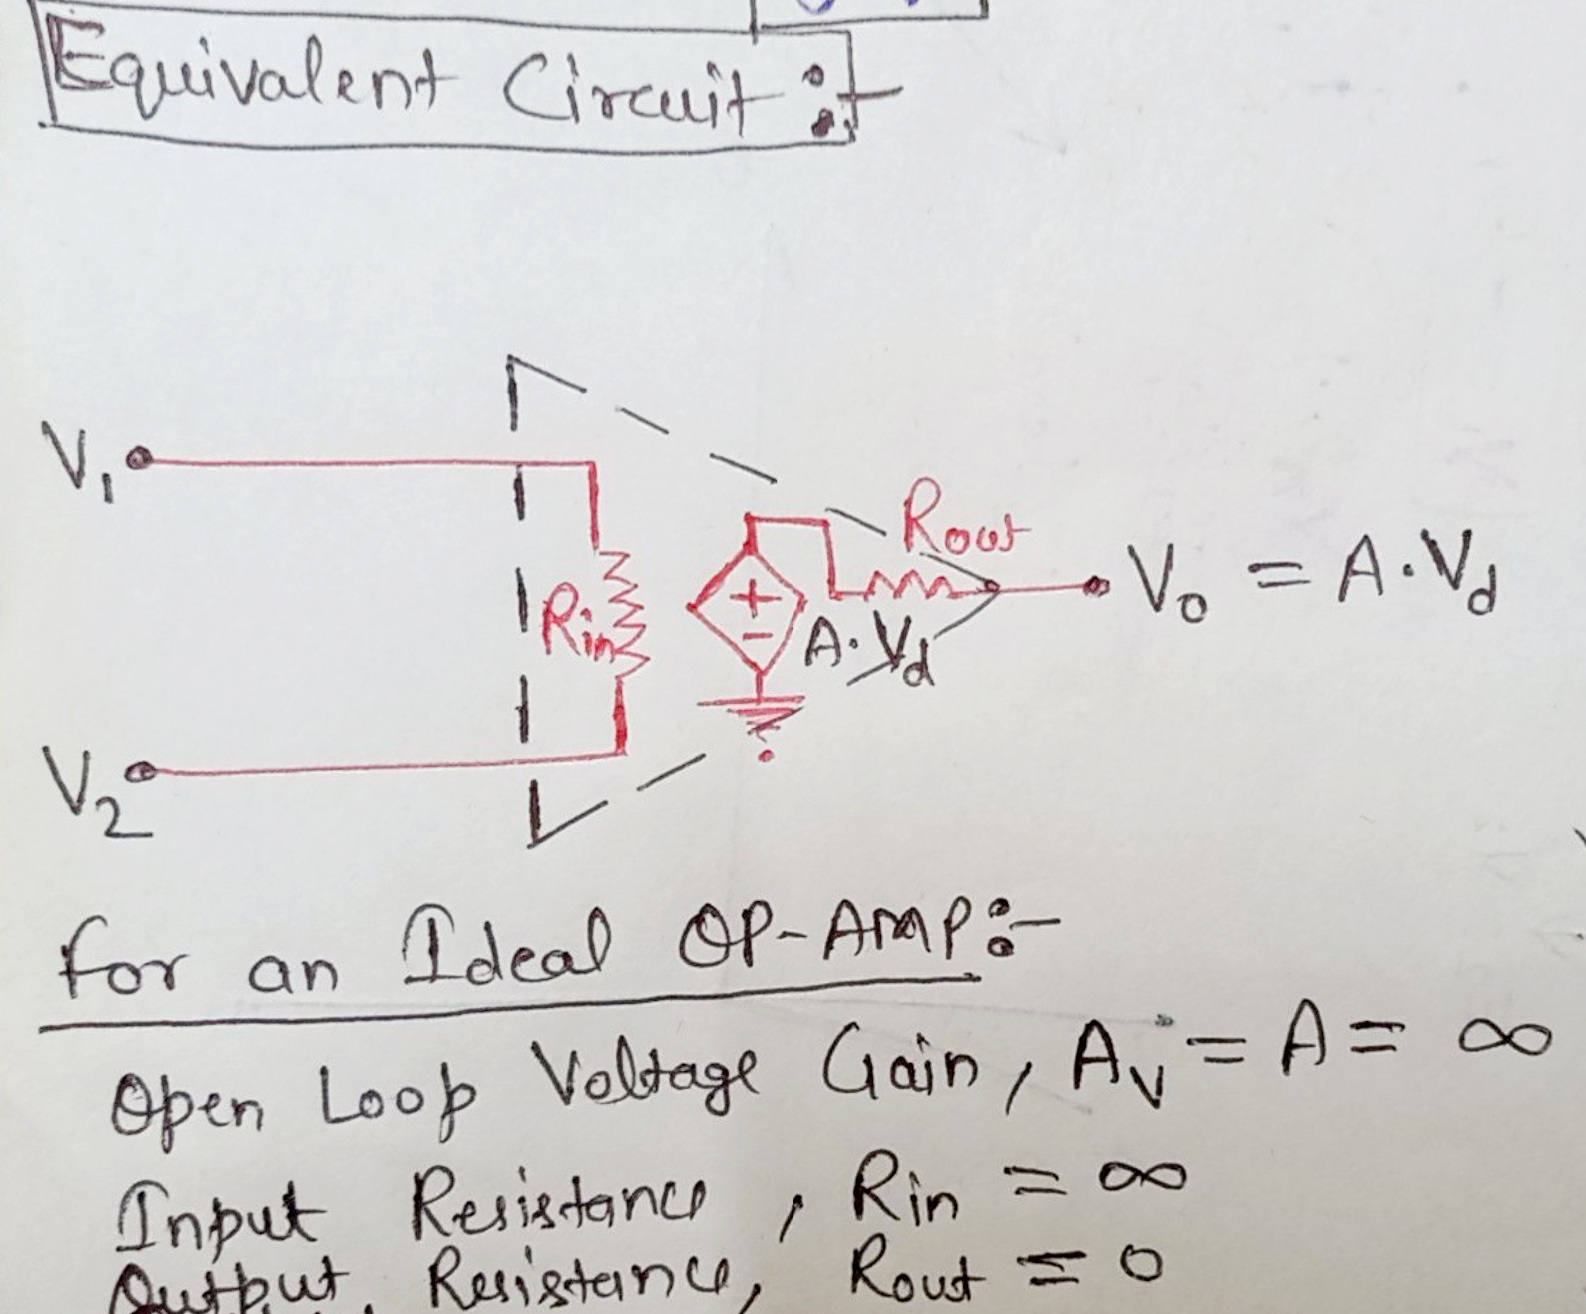 Equivalent Circuit :-
V1
Rout
Vo = A·Vd
Rin
+
-
A·Vd
V2
for an Ideal OP-AMP:-
Open Loop Voltage Gain, Av = A = ∞
Input Resistance, Rin = ∞
Output Resistance, Rout = 0